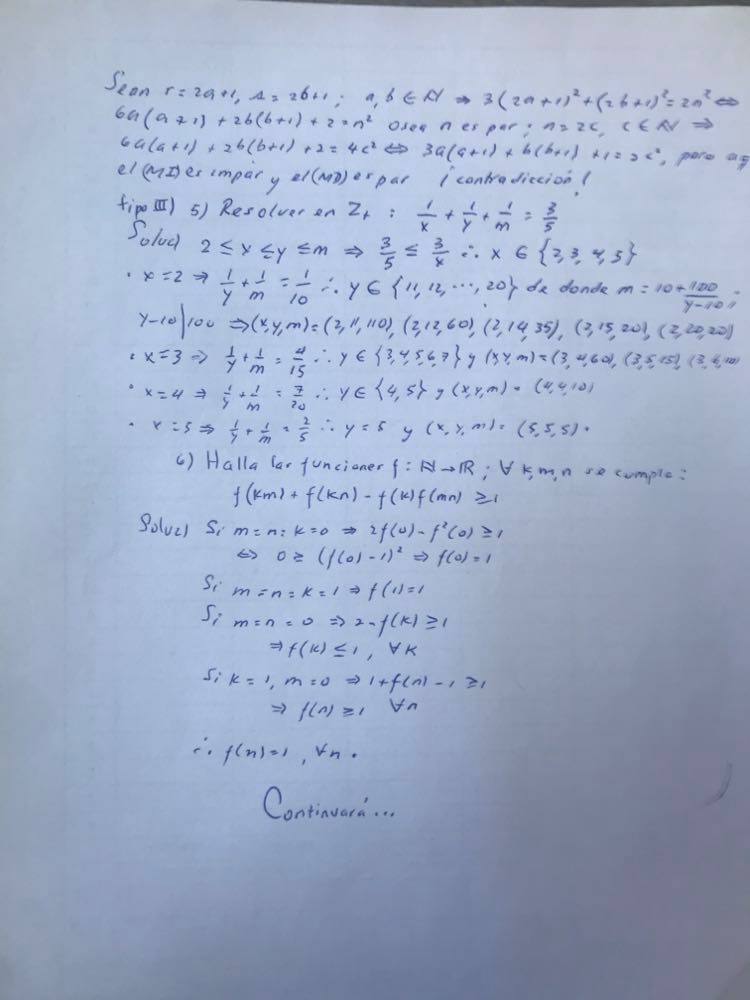 Sean r = 2a+1, s = 2b+1 ; a, b ∈ ℕ ⇒ 3(2a+1)² + (2b+1)² = 2n² ⇔
6a(a+1) + 2b(b+1) + 2 = n² osea n es par ; n = 2c, c ∈ ℕ ⇒
6a(a+1) + 2b(b+1) + 2 = 4c² ⇔ 3a(a+1) + b(b+1) + 1 = 2c², pero
el (MI) es impar y el (MD) es par ¡contradicción!
tipo III) 5) Resolver en Z₊ : 1/x + 1/y + 1/m = 3/5
Soluc) 2 ≤ x ≤ y ≤ m ⇒ 3/5 ≤ 3/x ∴ x ∈ {2,3,4,5}
• x = 2 ⇒ 1/y + 1/m = 1/10 ∴ y ∈ {11, 12, ..., 20} de donde m = 10 + 100/(y-10) ;
y-10 | 100 ⇒ (x,y,m) = (2,11,110), (2,12,60), (2,14,35), (2,15,30), (2,20,20)
• x = 3 ⇒ 1/y + 1/m = 4/15 ∴ y ∈ {3,4,5,6,7} y (x,y,m) = (3,4,60), (3,5,15), (3,6,10)
• x = 4 ⇒ 1/y + 1/m = 7/20 ∴ y ∈ {4,5} y (x,y,m) = (4,4,10)
• x = 5 ⇒ 1/y + 1/m = 2/5 ∴ y = 5 y (x,y,m) = (5,5,5) •
6) Halla las funciones f : ℕ → ℝ ; ∀ k,m,n se cumple :
f(km) + f(kn) - f(k)f(mn) ≥ 1
Soluc) Si m = n = k = 0 ⇒ 2f(0) - f²(0) ≥ 1
⇔ 0 ≥ (f(0) - 1)² ⇒ f(0) = 1
Si m = n = k = 1 ⇒ f(1) = 1
Si m = n = 0 ⇒ 2 - f(k) ≥ 1
⇒ f(k) ≤ 1, ∀k
Si k = 1, m = 0 ⇒ 1 + f(n) - 1 ≥ 1
⇒ f(n) ≥ 1 ∀n
∴ f(n) = 1, ∀n •
Continuará...